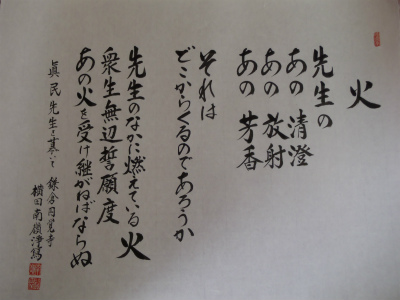 火
先生の
あの 清澄
あの 放射
あの 芳香
それは
どこからくるのであろうか
先生のなかに燃えている火
衆生無辺誓願度
あの火を受け継がねばならぬ
眞民先生を慕いて 鎌倉円覚寺
横田南嶺浄写